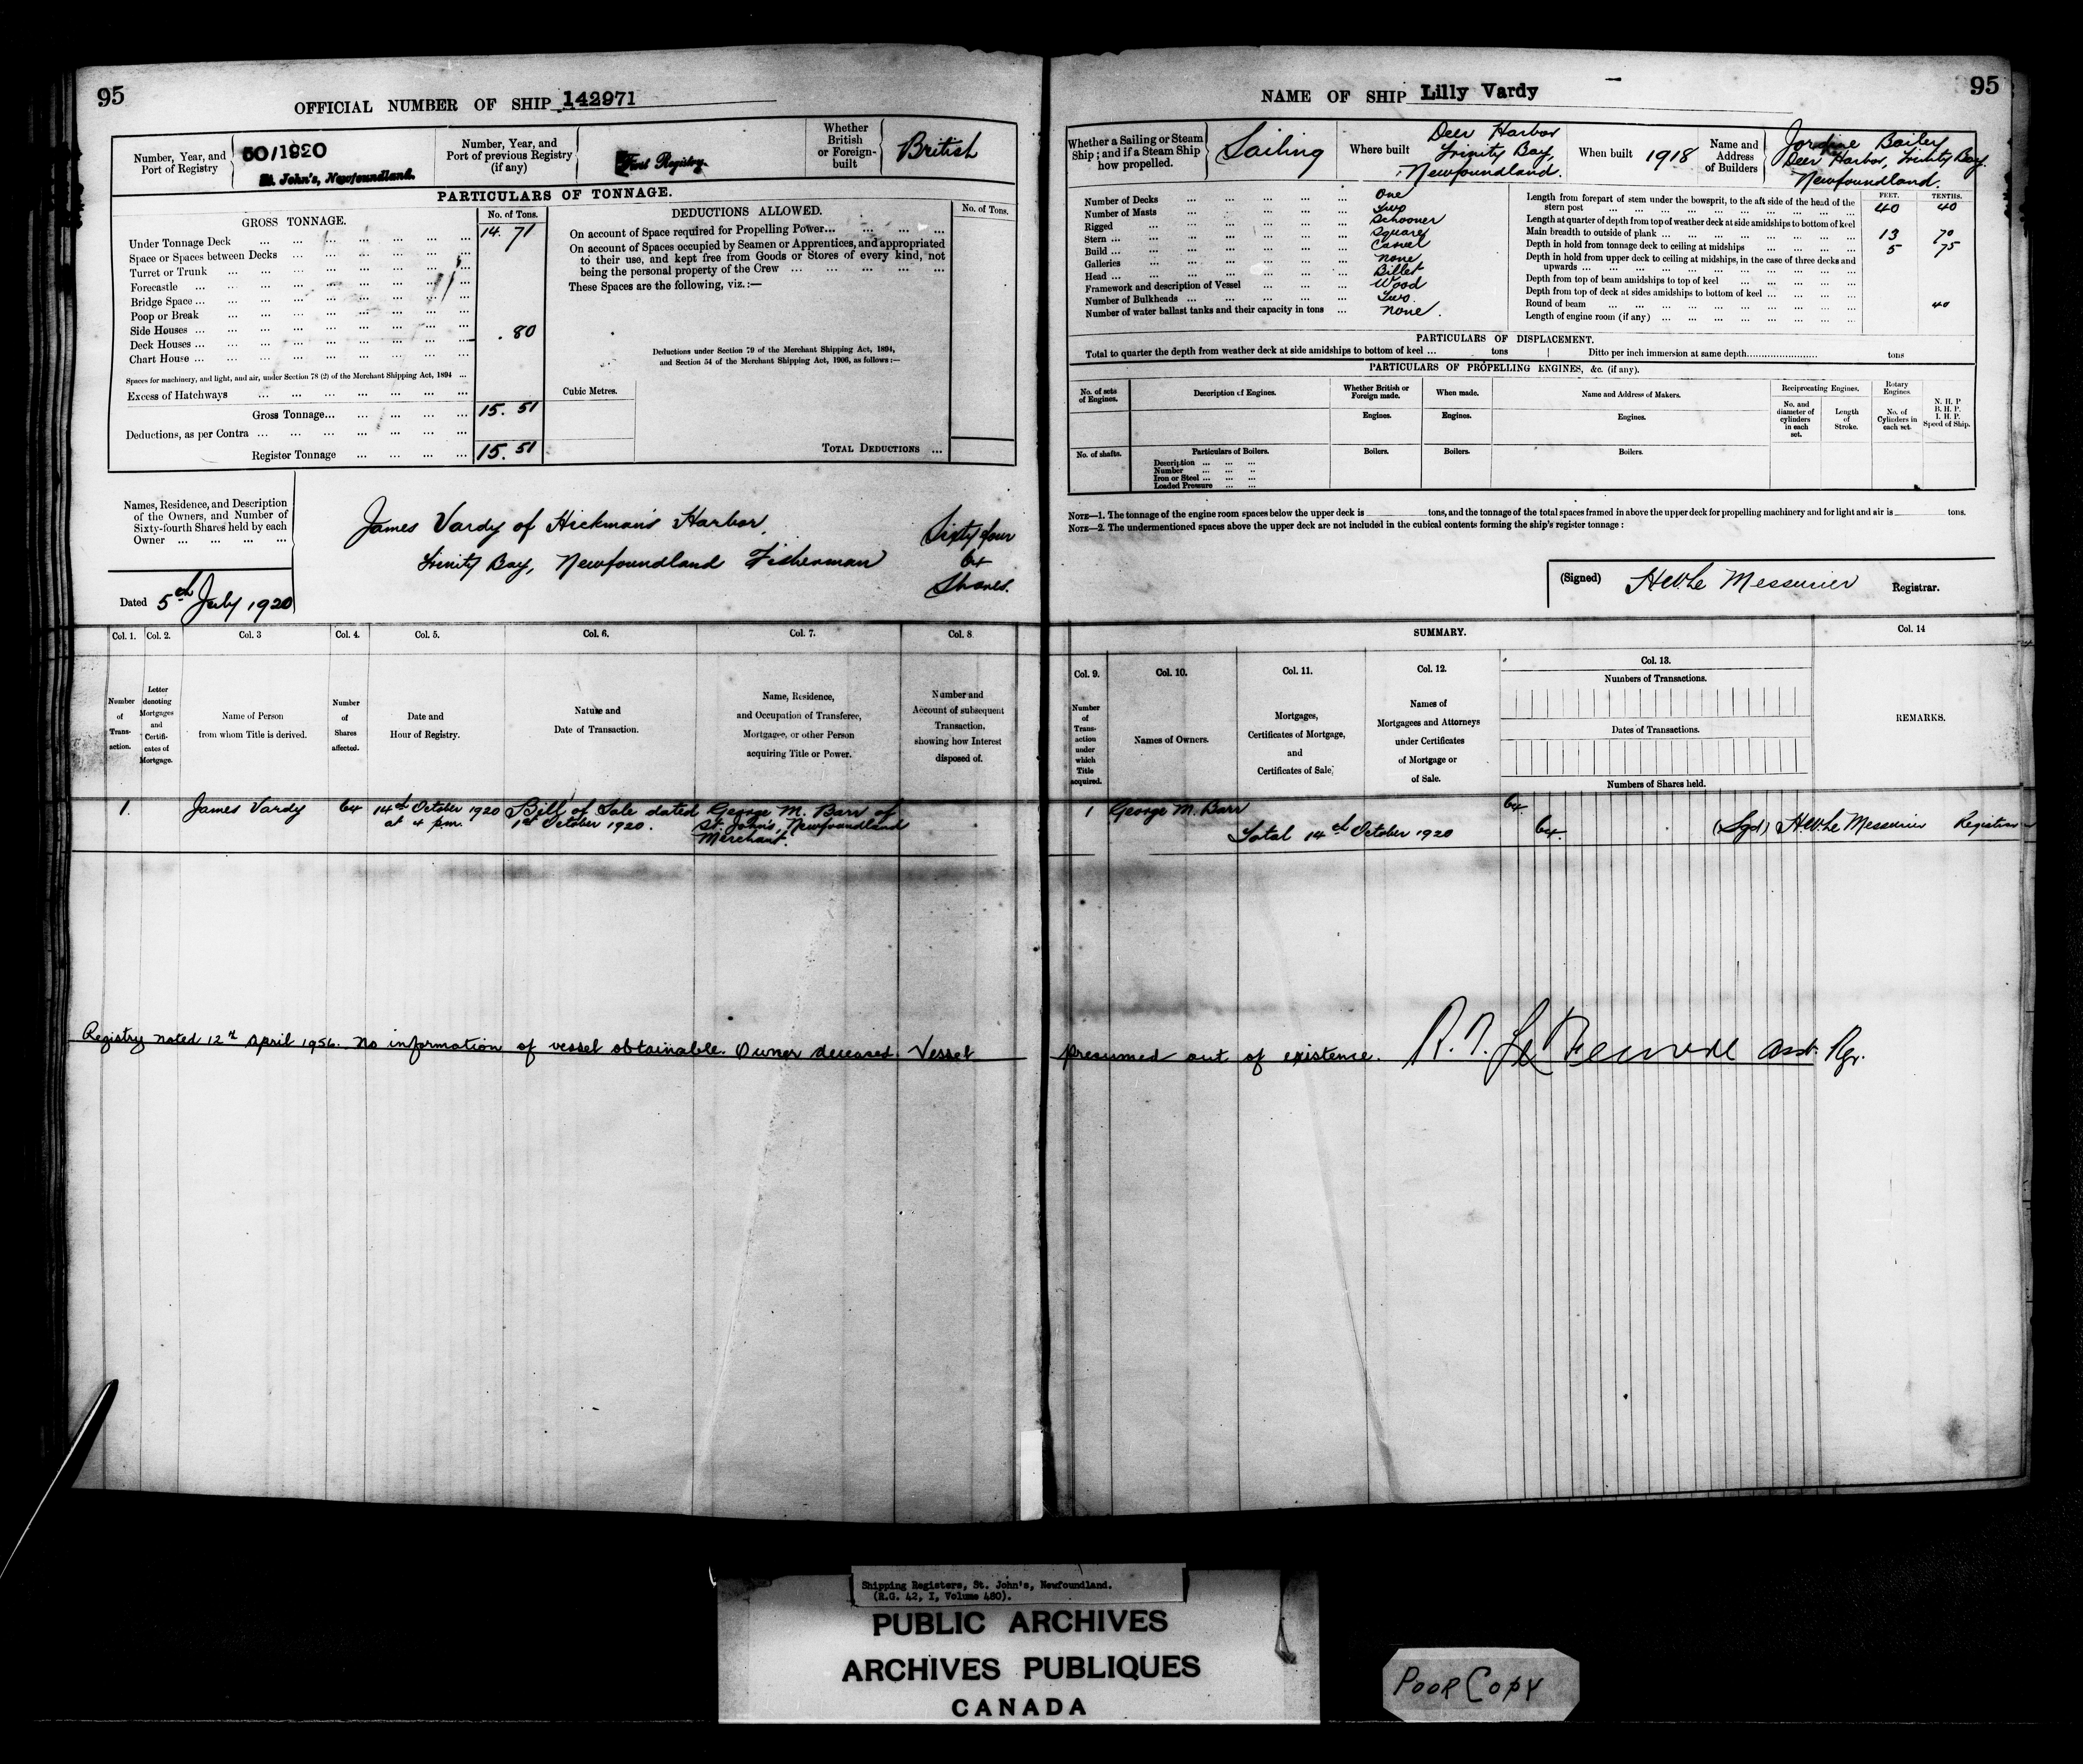 95
OFFICIAL NUMBER OF SHIP 142971
Number, Year, and Port of Registry
50/1920
St. John's, Newfoundland.
Number, Year, and Port of previous Registry (if any)
First Registry.
Whether British or Foreign-built
British
PARTICULARS OF TONNAGE.
GROSS TONNAGE.
No. of Tons.
Under Tonnage Deck ... 14. 71
Space or Spaces between Decks ...
Turret or Trunk ...
Forecastle ...
Bridge Space ...
Poop or Break ...
Side Houses ... .80
Deck Houses ...
Chart House ...
Spaces for machinery, and light, and air, under Section 78 (2) of the Merchant Shipping Act, 1894 ...
Excess of Hatchways ...
Gross Tonnage... 15. 51
Deductions, as per Contra ...
Register Tonnage ... 15. 51
DEDUCTIONS ALLOWED.
No. of Tons.
On account of Space required for Propelling Power...
On account of Spaces occupied by Seamen or Apprentices, and appropriated
to their use, and kept free from Goods or Stores of every kind, not
being the personal property of the Crew ...
These Spaces are the following, viz.:—
Deductions under Section 79 of the Merchant Shipping Act, 1894,
and Section 54 of the Merchant Shipping Act, 1906, as follows:—
Cubic Metres.
TOTAL DEDUCTIONS ...
Names, Residence, and Description
of the Owners, and Number of
Sixty-fourth Shares held by each
Owner ...
James Vardy of Hickman's Harbor,
Trinity Bay, Newfoundland Fisherman
Sixty four
64
Shares.
Dated 5th July 1920
Col. 1. Col. 2. Col. 3 Col. 4. Col. 5. Col. 6. Col. 7. Col. 8
Number of Transaction.
Letter denoting Mortgages and Certificates of Mortgage.
Name of Person from whom Title is derived.
Number of Shares affected.
Date and Hour of Registry.
Nature and Date of Transaction.
Name, Residence, and Occupation of Transferee, Mortgagee, or other Person acquiring Title or Power.
Number and Account of subsequent Transaction. showing how Interest disposed of.
1. James Vardy 64 14th October 1920 Bill of Sale dated George M. Barr of
at 4 p.m. 1st October 1920. St. John's, Newfoundland
Merchant.
Registry noted 12th April 1956. No information of vessel obtainable. Owner deceased. Vessel
NAME OF SHIP Lilly Vardy
95
Whether a Sailing or Steam Ship; and if a Steam Ship how propelled.
Sailing
Where built
Deer Harbor
Trinity Bay,
Newfoundland.
When built 1918
Name and Address of Builders
Bailey
Deer Harbor, Trinity Bay.
Newfoundland.
Number of Decks ... One
Number of Masts ... Two
Rigged ... Schooner
Stern ... Square
Build ... Carvel
Galleries ... none
Head ... Billet
Framework and description of Vessel ... Wood
Number of Bulkheads ... Two.
Number of water ballast tanks and their capacity in tons ... none.
FEET. TENTHS.
Length from forepart of stem under the bowsprit, to the aft side of the head of the
stern post ... 40 40
Length at quarter of depth from top of weather deck at side amidships to bottom of keel
Main breadth to outside of plank ... 13 70
Depth in hold from tonnage deck to ceiling at midships ... 5 75
Depth in hold from upper deck to ceiling at midships, in the case of three decks and
upwards ...
Depth from top of beam amidships to top of keel ...
Depth from top of deck at sides amidships to bottom of keel ...
Round of beam ... 40
Length of engine room (if any) ...
PARTICULARS OF DISPLACEMENT.
Total to quarter the depth from weather deck at side amidships to bottom of keel ... tons
Ditto per inch immersion at same depth........................ tons
PARTICULARS OF PROPELLING ENGINES, &c. (if any).
No. of sets of Engines.
Description of Engines.
Whether British or Foreign made.
When made.
Name and Address of Makers.
Reciprocating Engines.
Rotary Engines
N. H. P
B. H. P.
I. H. P.
Speed of Ship.
Engines. Engines. Engines.
No. and diameter of cylinders in each set.
Length of Stroke.
No. of Cylinders in each set.
No. of shafts.
Particulars of Boilers.
Boilers. Boilers. Boilers.
Description ...
Number ...
Iron or Steel ...
Loaded Pressure ...
NOTE—1. The tonnage of the engine room spaces below the upper deck is tons, and the tonnage of the total spaces framed in above the upper deck for propelling machinery and for light and air is tons.
NOTE—2. The undermentioned spaces above the upper deck are not included in the cubical contents forming the ship's register tonnage:
(Signed) H W Le Messurier Registrar.
SUMMARY.
Col. 14
Col. 9. Col. 10. Col. 11. Col. 12. Col. 13.
Number of Transaction under which Title acquired.
Names of Owners.
Mortgages, Certificates of Mortgage, and Certificates of Sale.
Names of Mortgagees and Attorneys under Certificates of Mortgage or of Sale.
Numbers of Transactions.
Dates of Transactions.
Numbers of Shares held.
REMARKS.
1 George M. Barr 64
Total 14th October 1920 64. (Sgd) H W Le Messurier Registrar
presumed out of existence. Asst. Rgr.
Shipping Registers, St. John's, Newfoundland.
(R.G. 42, I, Volume 480).
PUBLIC ARCHIVES
ARCHIVES PUBLIQUES
CANADA
POOR COPY